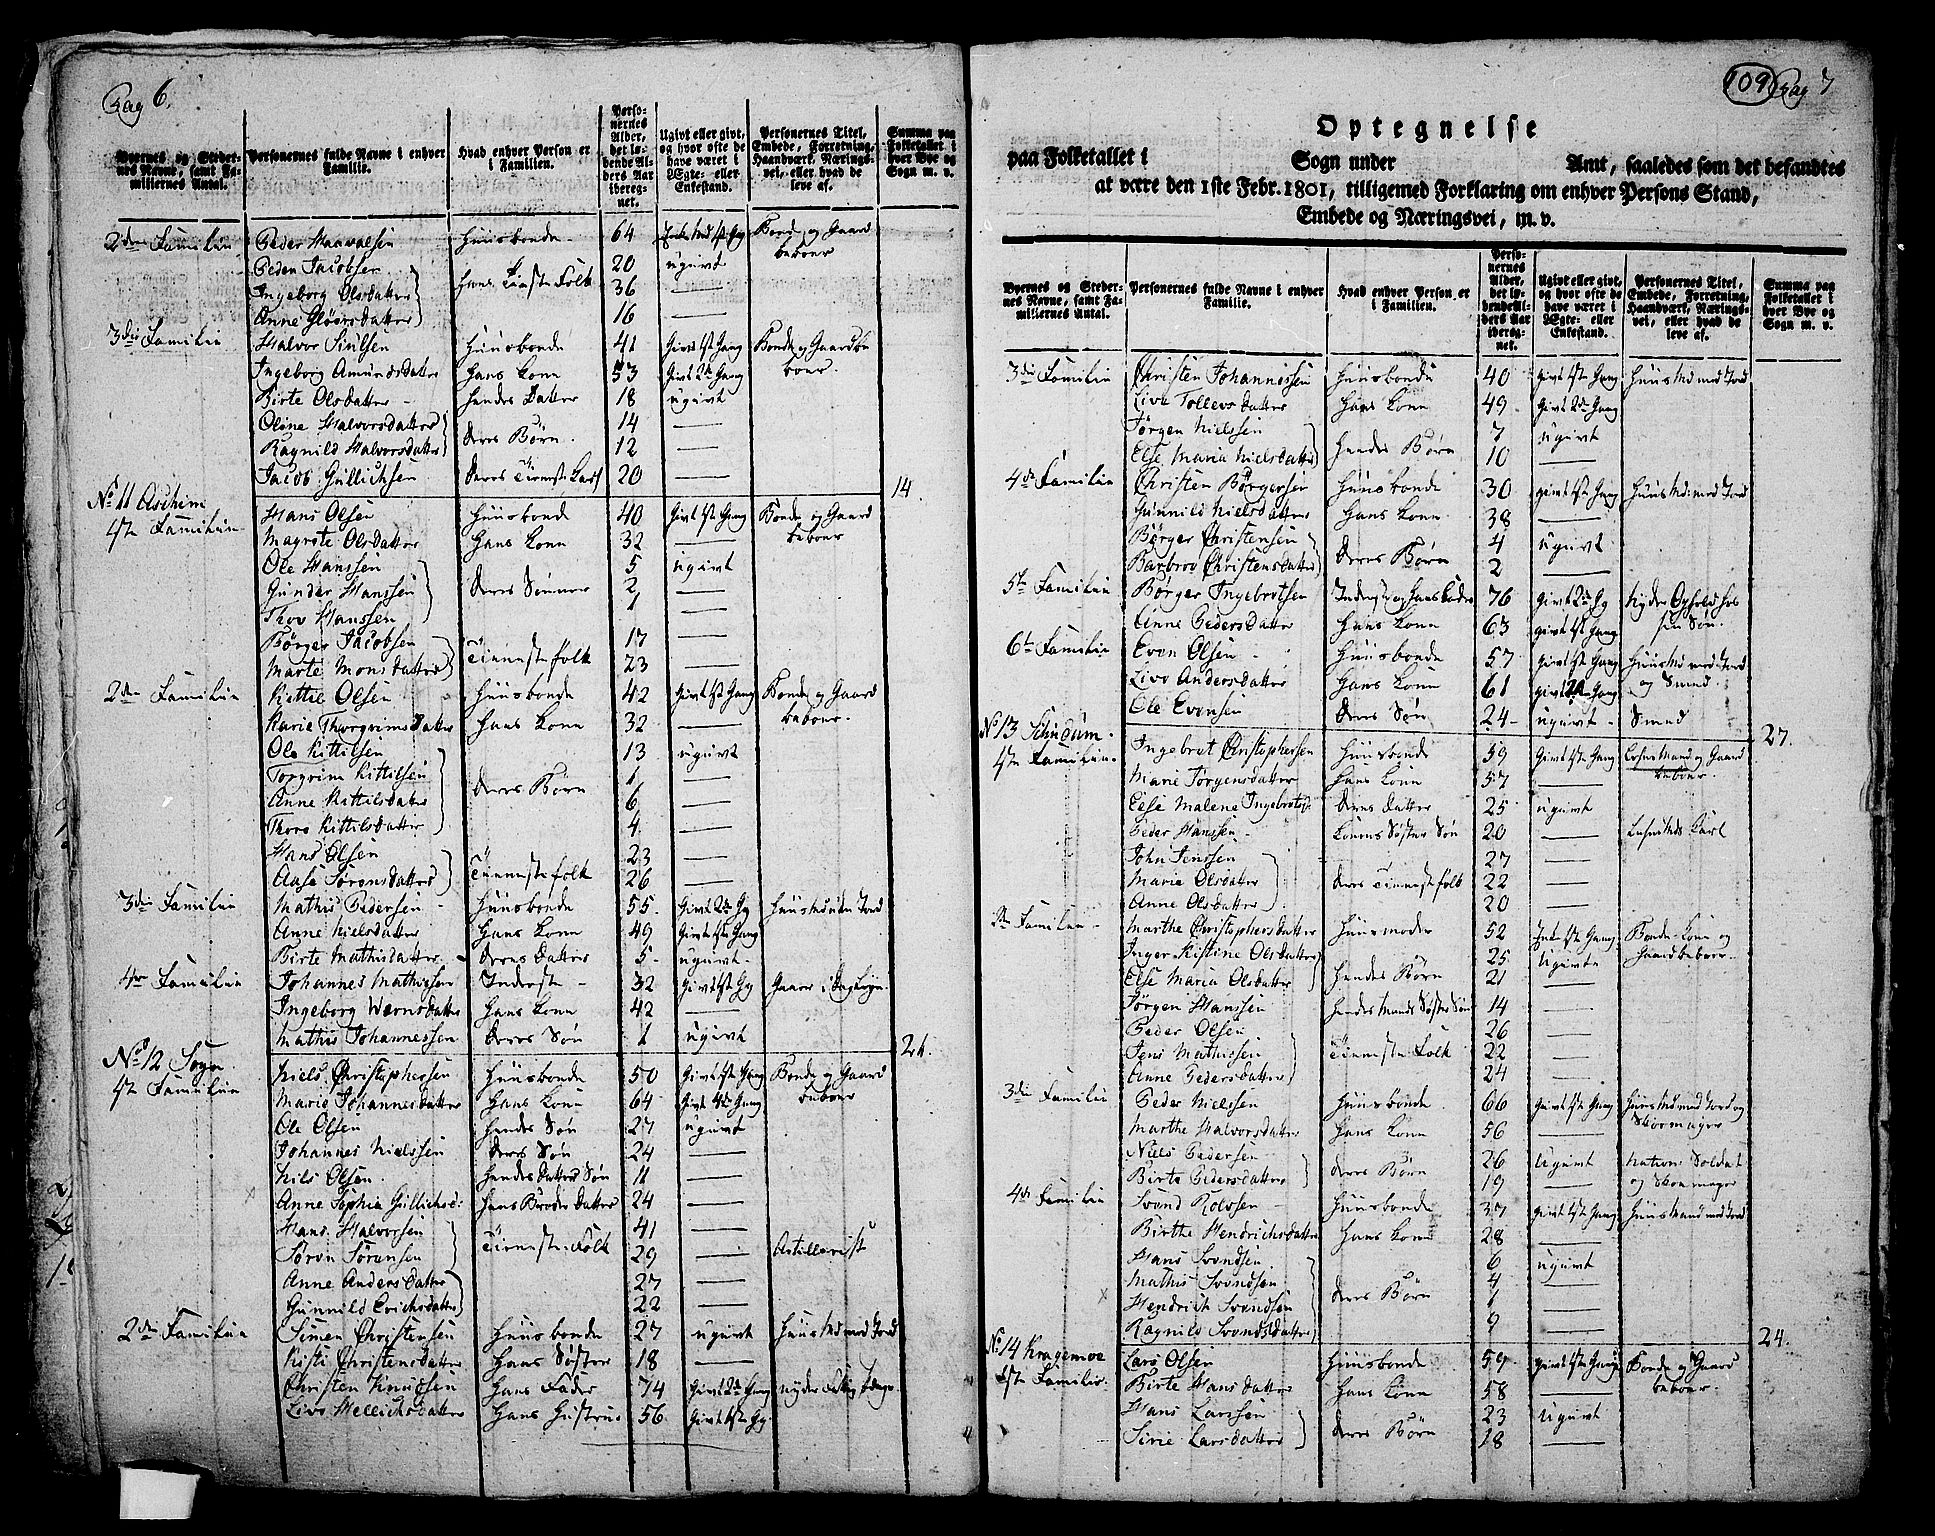 Pag 6.
Byernes og Steder-
nes Navne, samt Fa-
miliernes Antal.
Personernes fulde Navne i enhver
Familie.
Hvad enhver Person er
i Familien.
Perso-
nernes
Alder,
det lø-
bende Al-
ders Aar
ibereg-
net.
Ugivt eller givt,
og hvor ofte de
have været i
Ægte- eller
Enkestand.
Personernes Titel,
Embede, Forretning,
Haandværk, Nærings-
vei, eller hvad de
leve af.
Summa paa
Folketallet i
hver Bye og
Sogn m. v.
2den Familie Peder Haavalsen Huusbonde 64 Bonde og Gaard
beboer
Peder Jacobsen 20 ugivt
Ingeborg Olsdatter hans Tieneste Folk 36 —
Anne Gløersdatter 16 —
3die Familie Halvor Sinilsen Huusbonde 41 Givt 1ste Gang Bonde og Gaardbe
boer
Ingeborg Amundsdatter Hans Kone 53 Givt 2den Gang
Birte Olsdatter Hendes Datter 18 ugivt
Oline Halvorsdatter 14 —
Ragnild Halvorsdatter deres Børn 12 —
Jacob Gullichsen deres Tieneste Karl 20 — 14.
No 11 Aschim
1ste Familie Hans Olsen Huusbonde 40 Givt 1ste Gang Bonde og Gaard
beboer
Magrete Olsdatter Hans Kone 32 —
Ole Hanssen 5 ugivt
Gunder Hanssen deres Sønner 2 —
Thov Hanssen 1
Børger Jacobsen 17 —
Marte Monsdatter Tieneste folk 23 —
2den Familie Kittil Olsen Huusbonde 42 Givt 1ste Gang Bonde og Gaard
beboer
Marie Thorgrimsdatter Hans Kone 32 —
Ole Kittilsen 13 ugivt
Torgrim Kittilsen 1 —
Anne Kittilsdatter deres Børn 6 —
Thore Kittilsdatter 4 —
Hans Olsen 23 —
Aase Sørensdatter Tieneste folk 26 —
3die Familie Mathis Pedersen Huusbonde 55 Givt 2den Gg Huusmd uden Jord
Anne Nielsdatter Hans Kone 49 Givt 1ste Gang
Birte Mathisdatter deres Datter 5 ugivt
4de Familie Johannes Mathissen Inderste 32 Givt 1ste Gg Gaaer i Dagleye
Ingeborg Wernsdatter Hans Kone 42 —
Mathis Johannessen deres Søn 1 ugivt 21.
No 12 Sogn
1ste Familie Niels Christophersen Huusbonde 50 Givt 1ste Gang Bonde og Gaard
beboer
Marie Johannesdatter Hans Kone 64 Givt 4de Gang
Ole Olsen Hendes Søn 27 ugivt
Johannes Nielssen deres Søn 24 —
Nils Olsen Hendes Datters Søn 11 —
Anne Sophia Gullichsd: Hans Broders Datter 24 —
Hans Halvorsen 41 —
Søren Sørensen Tieneste Folk 29 — Artillerist
Anne Andersdatter 27 —
Gunnild Erichsdatter 22 —
2den Familie Simen Christensen Huusbonde 27 ugivt Huusmd med Jord
Kisti Christensdatter Hans Søster 18 —
Christen Knudsen Hans Fader 74 Givt 2den Gang
Live Mellichsdatter Hans Hustrue 56 Givt 1ste Gg
109 Pag 7
Optegnelse
paa Folketallet i Sogn under Amt, saaledes som det befandtes
at være den 1ste Febr. 1801, tilligemed Forklaring om enhver Persons Stand,
Embede og Næringsvei, m. v.
Byernes og Steder-
nes Navne, samt Fa-
miliernes Antal.
Personernes fulde Navne i enhver
Familie.
Hvad enhver Person er
i Familien.
Perso-
nernes
Alder,
det lø-
bende Al-
ders Aar
ibereg-
net.
Ugivt eller givt,
og hvor ofte de
have været i
Ægte- eller
Enkestand.
Personernes Titel,
Embede, Forretning,
Haandværk, Nærings-
vei, eller hvad de
leve af.
Summa paa
Folketallet i
hver Bye og
Sogn m. v.
3die Familie Christen Johannessen Huusbonde 40 Givt 1ste Gang Huusmd med Jord
Live Tollevsdatter Hans Kone 49 Givt 2den Gang
Jørgen Nielssen 7 ugivt
Else Maria Nielsdatter Hendes Børn 10 —
4de Familie Christen Børgersen Huusbonde 30 Givt 1ste Gang Huusmd med Jord
Gunnild Nielsdatter Hans Kone 38 —
Børger Christensen 4 ugivt
Barbroe Christensdatter deres Børn 2 —
5te Familie Børger Ingebretsen Inderste og Hans Fader 76 Givt 2den Gg Nyder Ophold hos
sin Søn
Anne Pedersdatter Hans Kone 63 Givt 1ste Gang
6te Familie Even Olsen Huusbonde 57 Givt 1ste Gang Huusmd med Jord
og Smed
Live Andersdatter Hans Kone 61 Givt 2den Gang
Ole Evensen deres Søn 24 ugivt Smed 27.
No 13 Schudum
1ste Familie Ingebret Christophersen Huusbonde 59 Givt 1ste Gang Lehnsmand og Gaard
beboer
Marie Jørgensdatter Hans Kone 57 —
Else Malene Ingebretsd: deres datter 25 ugivt
Peder Hanssen Konens Søster Søn 20 — Lehnsmds Karl
John Jenssen 27 —
Marie Olsdatter deres Tieneste folk 22 —
Anne Olsdatter 20 —
2den Familie Marthe Christophersdatter Huusmoder 52 Enke 1ste Gang Bonde Kone og
Gaardbeboer
Inger Kistine Olsdatter 25 ugivte
Else Maria Olsdatter Hendes Børn 21 —
Jørgen Hanssen Hendes Mands Søster Søn 14 —
Peder Olsen 26 —
Jens Mathissen Tieneste Folk 22 —
Anne Pedersdatter 24 —
3die Familie Peder Nielssen Huusbonde 66 Givt 1ste Gang Huusmd med Jord og
Skoemager
Marthe Halvorsdatter Hans Kone 56 —
Niels Pedersen 26 ugivt Nation: Soldat
og Skoemager
Birte Pedersdatter deres Børn 19 —
4de Familie Svend Rolvsen Huusbonde 37 Givt 1ste Gang Huusmand med Jord
Birthe Hendrichsdatter Hans Kone 28 —
Hans Svendsen 6 ugivt
Mathis Svendsen 4 —
Hendrich Svendsen deres Børn 1 —
Ragnild Svendsdatter 9 — 24.
No 14 Kragemoe
1ste Familie Lars Olsen Huusbonde 59 Givt 1ste Gang Bonde og Gaard
beboer
Birte Hansdatter Hans Kone 58 —
Hans Larssen 23 ugivt
Sirie Larsdatter deres Børn 18 —